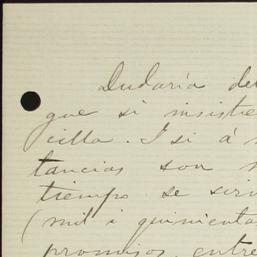 Dudaría de
que si insistie
cilla. I si á
tancias son
tiempo se sirv
(mil i quinienta
promisos, entre